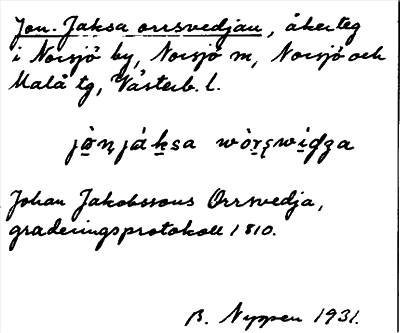 Jon. Jaksa orrsvedjan, åkerteg
i Norsjö by, Norsjö m, Norsjö och
Malå tg, Västerb. l.
Johan Jakobssons Orrsvedja,
graderingsprotokoll 1810.
B. Nyppen 1931.